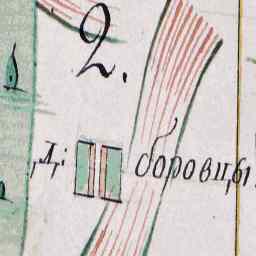 2.
д: боровцы